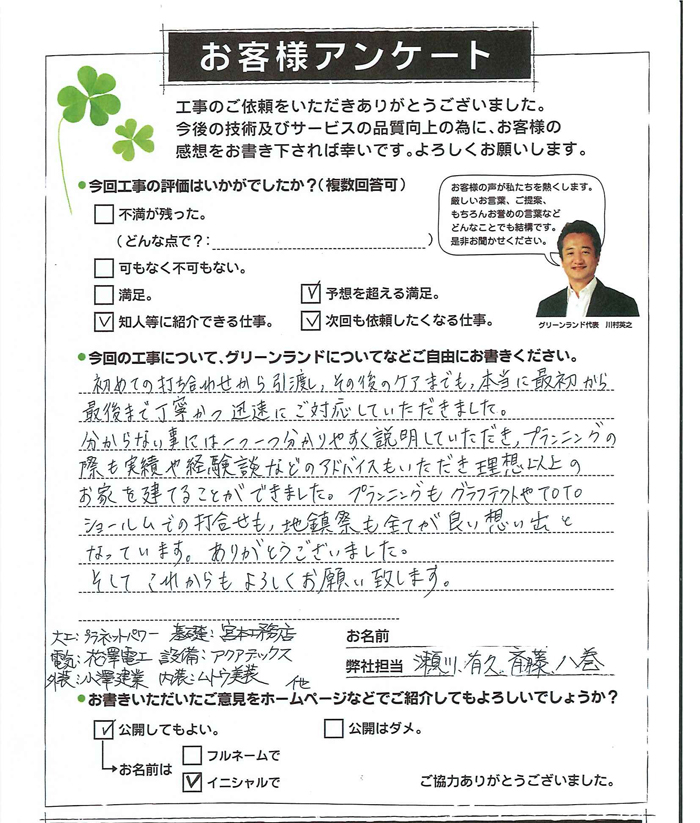 お客様アンケート
工事のご依頼をいただきありがとうございました。
今後の技術及びサービスの品質向上の為に、お客様の
感想をお書き下されば幸いです。よろしくお願いします。
●今回工事の評価はいかがでしたか？（複数回答可）
不満が残った。
（どんな点で？：　）
可もなく不可もない。
満足。
予想を超える満足。
知人等に紹介できる仕事。
次回も依頼したくなる仕事。
お客様の声が私たちを熱くします。
厳しいお言葉、ご提案、
もちろんお誉めの言葉など
どんなことでも結構です。
是非お聞かせください。
グリーンランド代表　川村英之
●今回の工事について、グリーンランドについてなどご自由にお書きください。
初めての打ち合わせから引渡し、その後のケアまでも、本当に最初から
最後まで丁寧かつ迅速にご対応していただきました。
分からない事には一つ一つ分かりやすく説明していただき、プランニングの
際も実績や経験談などのアドバイスもいただき理想以上の
お家を建てることができました。プランニングもグラフテクトやTOTO
ショールムでの打合せも、地鎮祭も全てが良い想い出と
なっています。ありがとうございました。
そしてこれからもよろしくお願い致します。
大工：プラネットパワー　基礎：宮本工務店
電気：花澤電工　設備：アクアテックス
外装：小澤建業　内装：ムトウ美装　他
お名前
弊社担当　瀬川、有久、斉藤、八巻
●お書きいただいたご意見をホームページなどでご紹介してもよろしいでしょうか？
公開してもよい。
公開はダメ。
お名前は
フルネームで
イニシャルで
ご協力ありがとうございました。